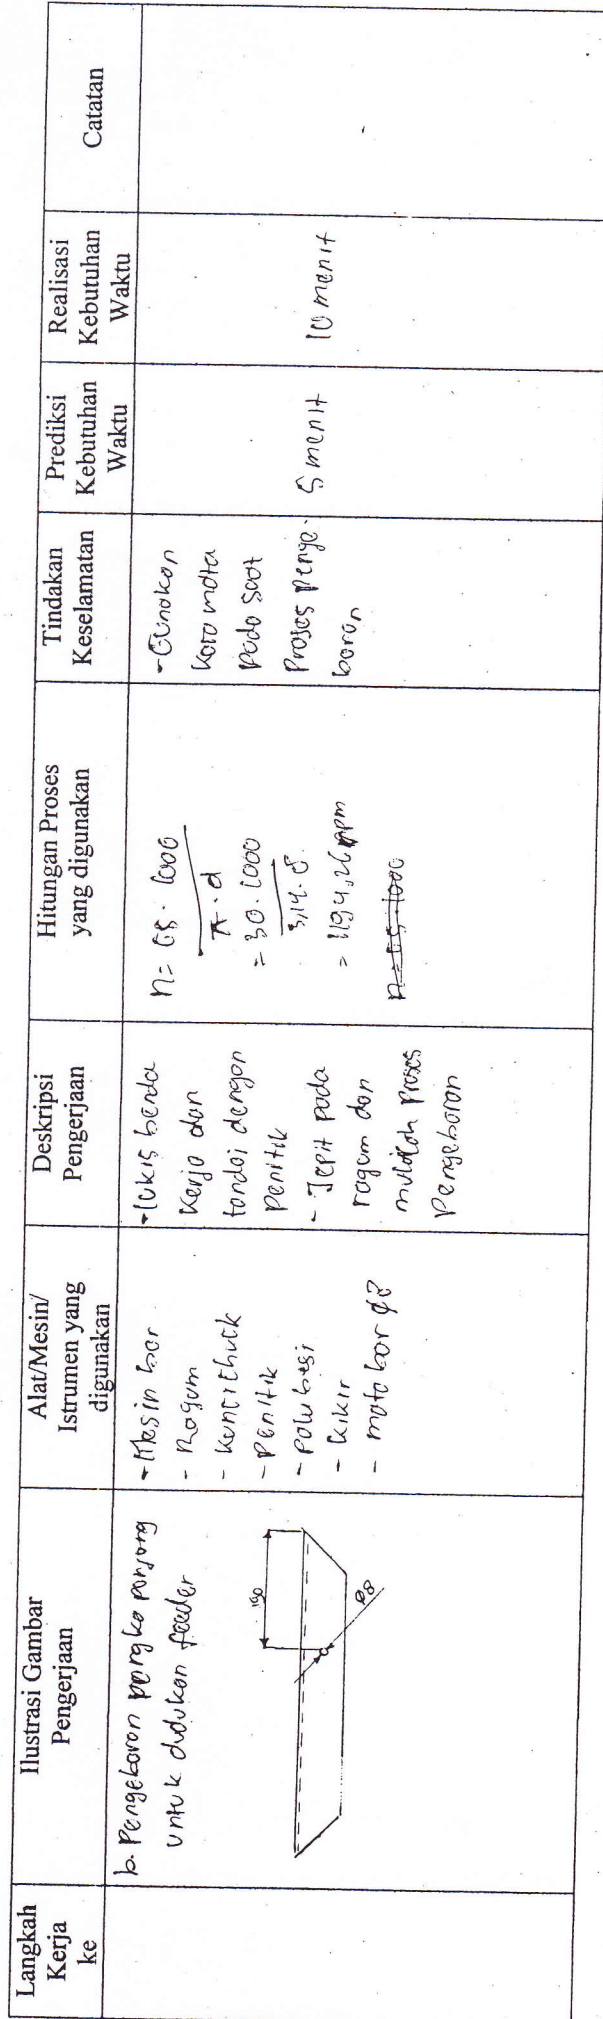 Langkah
Kerja
ke
Ilustrasi Gambar
Pengerjaan
Alat/Mesin/
Istrumen yang
digunakan
Deskripsi
Pengerjaan
Hitungan Proses
yang digunakan
Tindakan
Keselamatan
Prediksi
Kebutuhan
Waktu
Realisasi
Kebutuhan
Waktu
Catatan
b. Pengeboran rangka panjang
untuk dudukan feeder
150
Ø8
- Mesin bor
- Ragum
- Kunci chuck
- Penitik
- Palu besi
- Kikir
- mata bor Ø8
- Lukis benda
Kerja dan
tandai dengan
Penitik
- Jepit pada
ragum dan
mulailah proses
Pengeboran
n = CS . 1000
π . d
= 30 . 1000
3,14 . 8
= 1194,26 rpm
n = CS . 1000
- Gunakan
kaca mata
pada saat
Proses Penge-
boran
5 menit
10 menit